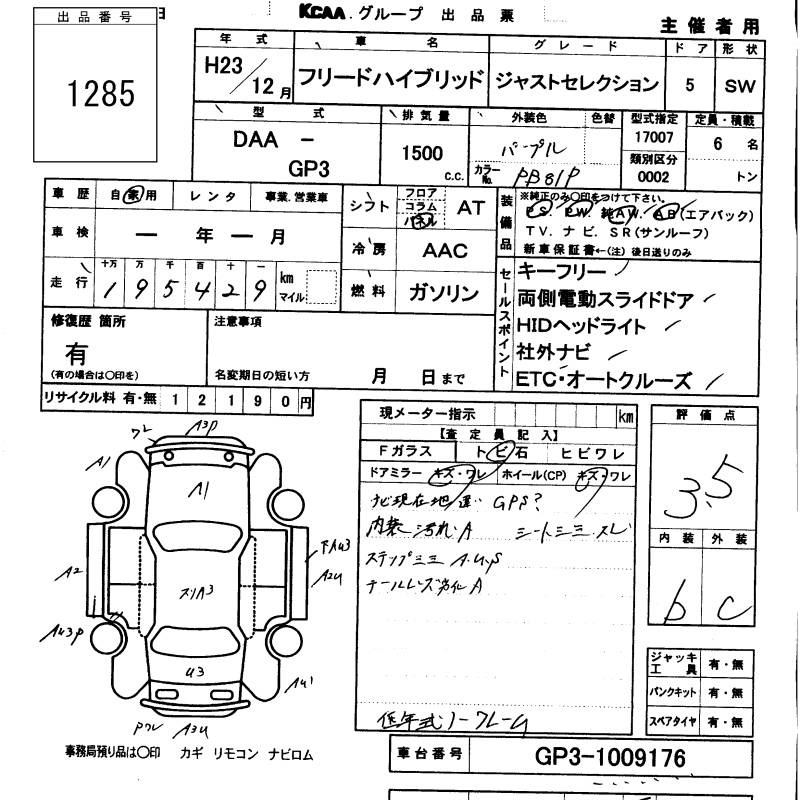 出品番号
1285
KCAA.グループ 出品票
主催者用
年式 車名 グレード ドア 形状
H23/12月 フリードハイブリッド ジャストセレクション 5 SW
型式 排気量 外装色 色替 型式指定 定員・積載
DAA - GP3 1500 c.c. パープル 17007 6名
カラーNo. PB81P 類別区分 0002 トン
車歴 自家用 レンタ 事業.営業車
車検 ー年ー月
走行 十万 万 千 百 十 一
195429 km マイル
シフト フロア コラム パネル AT
冷房 AAC
燃料 ガソリン
装備品 ※純正のみ〇印をつけて下さい。
PS. PW. 純AW. AB(エアバック)
TV. ナビ. SR(サンルーフ)
新車保証書←(注)後日送りのみ
セールスポイント
キーフリー
両側電動スライドドア
HIDヘッドライト
社外ナビ
ETC・オートクルーズ
修復歴 箇所
有
(有の場合は〇印を)
注意事項
名変期日の短い方 月 日まで
リサイクル料 有・無 12190円
現メーター指示 km
【査定員記入】
Fガラス トビ石 ヒビワレ
ドアミラー キズ・ワレ ホイール(CP) キズ・ワレ
ナビ現在地違い GPS?
内装 汚れ A シートシミ スレ
ステップミミ A.U.S
テールレンズ劣化 A
評価点
3.5
内装 外装
b c
ワレ A3P
A1
A1
A2
スリA3
下AU3
A2U
AU3P
U3
AU1
PワレA3U
ジャッキ工具 有・無
パンクキット 有・無
スペアタイヤ 有・無
事務局預り品は〇印 カギ リモコン ナビロム
車台番号 GP3-1009176